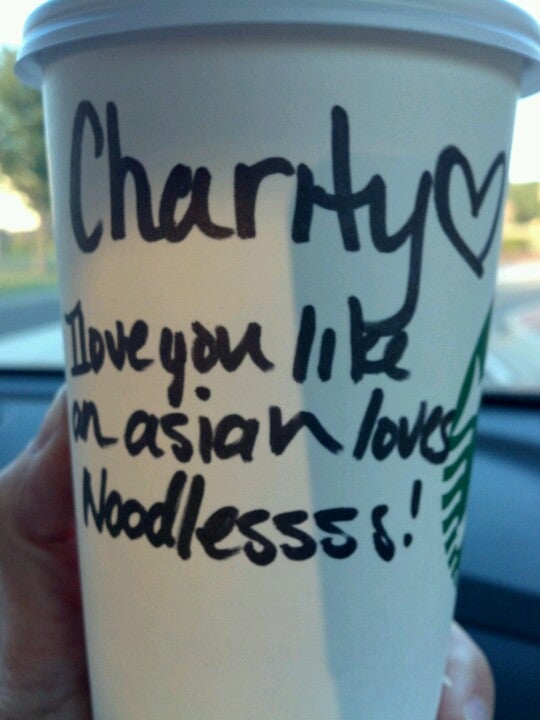 Charity ♡
I love you like
an asian loves
Noodlessss!